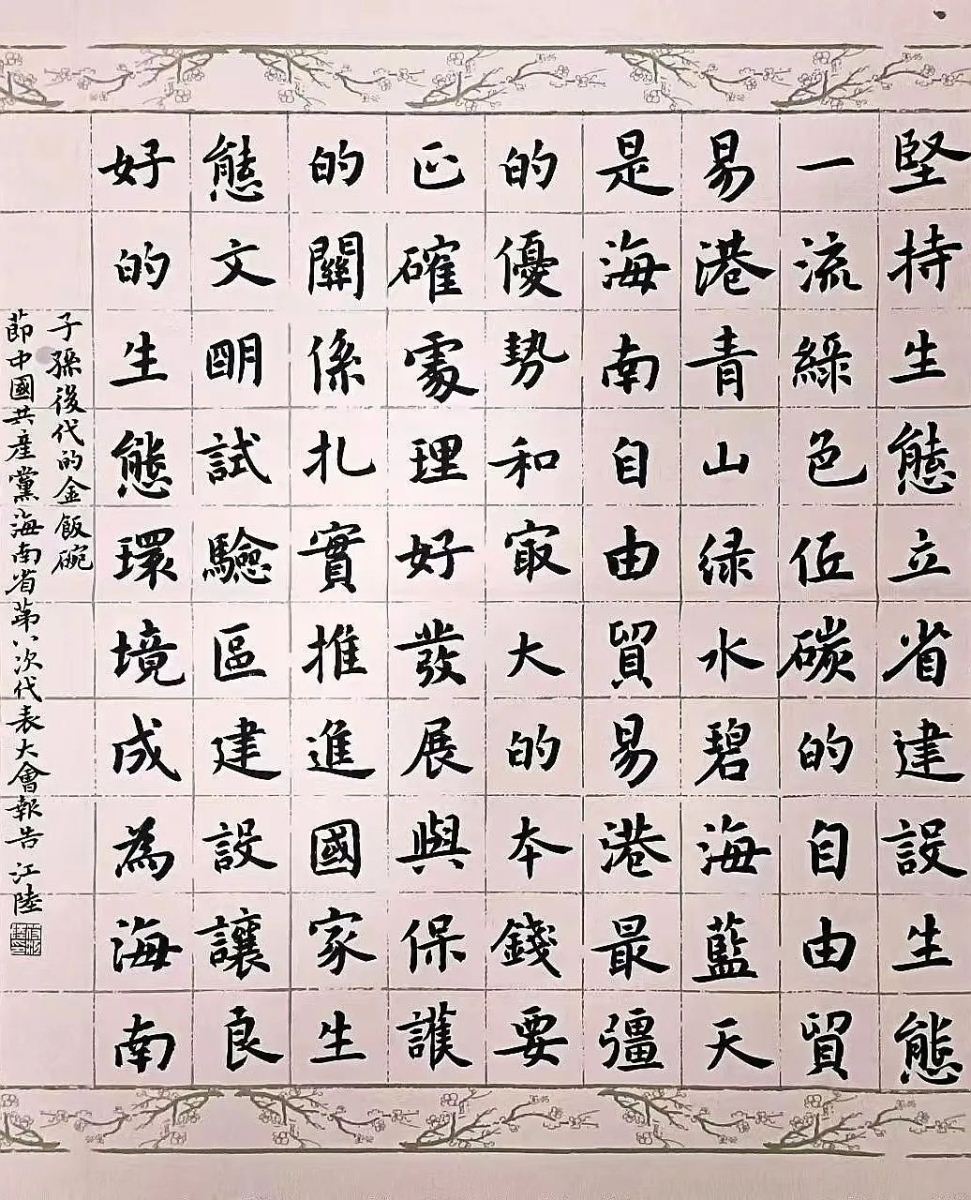 堅持生態立省建設生態
一流綠色低碳的自由貿
易港青山绿水碧海藍天
是海南自由貿易港最彊
的優勢和㝡大的本錢要
正確處理好發展與保護
的關係扎實推進國家生
態文明試驗區建設讓良
好的生態環境成為海南
子孫後代的金飯碗
節中國共產黨海南省第八次代表大會報告 江陸